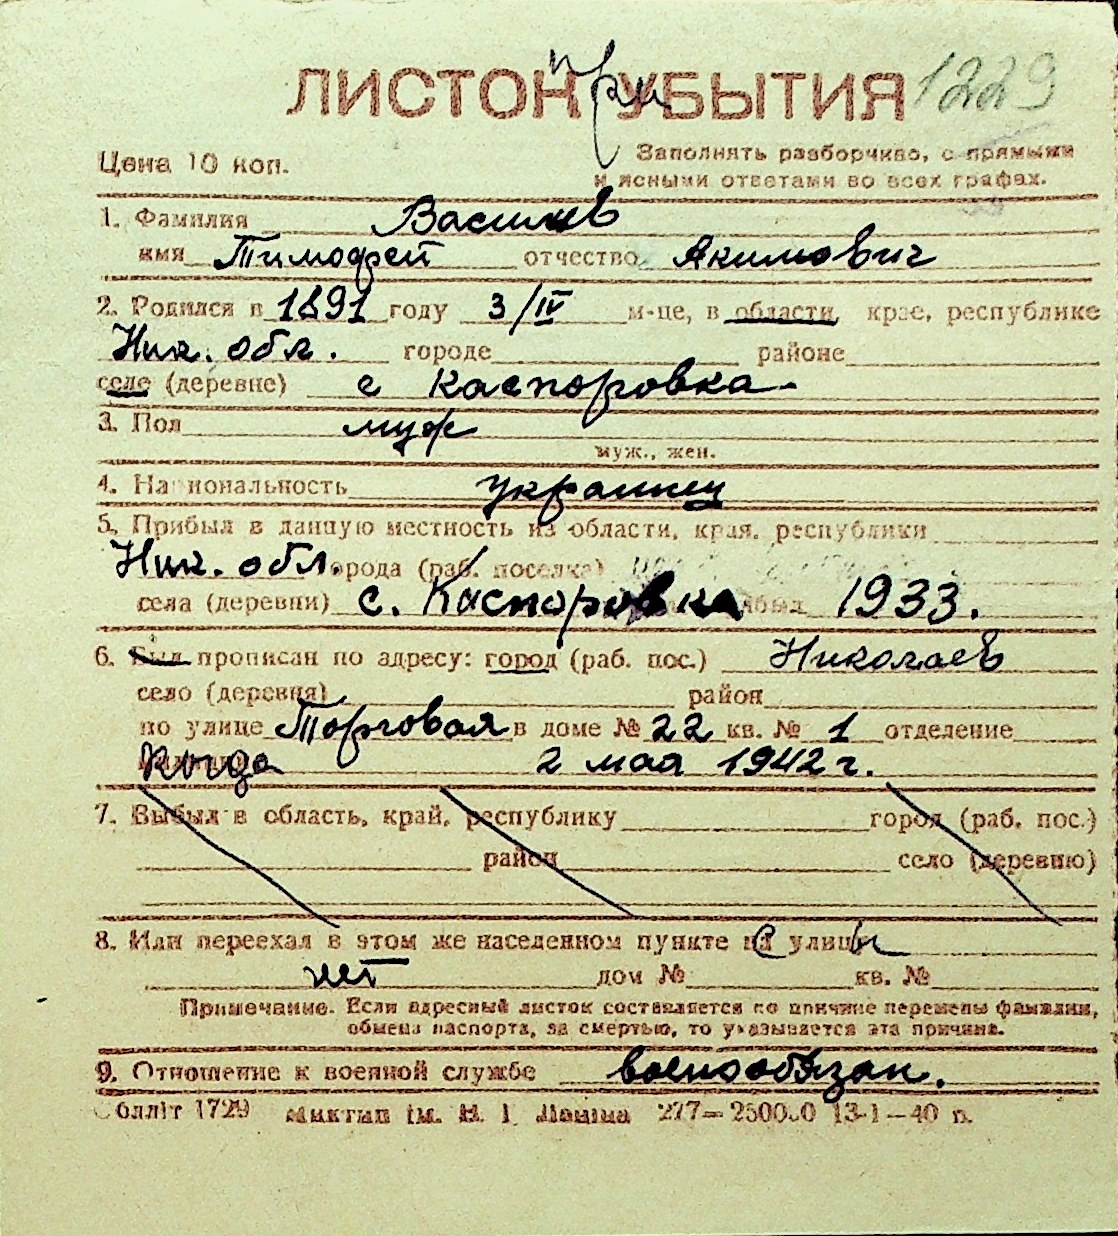 ЛИСТОК при УБЫТИЯ 1229
Цена 10 коп. Заполнять разборчиво, с прямыми
и ясными ответами во всех графах.
1. Фамилия Василев
имя Тимофей отчество Акимович
2. Родился в 1891 году 3/IV м-це, в области, крае, республике
Ник. обл. городе районе
селе (деревне) с Каспоровка
3. Пол муж
муж., жен.
4. Национальность украинец
5. Прибыл в данную местность из области, края, республики
Ник. обл. города (раб. поселка)
села (деревни) с. Каспоровка 1933.
6. Был прописан по адресу: город (раб. пос.) Николаев
село (деревня) район
по улице Торговая в доме № 22 кв. № 1 отделение
Когда 2 мая 1942 г.
7. Выбыл в область, край, республику город (раб. пос.)
район село (деревню)
8. Или переехал в этом же населенном пункте с улицы
нет дом № кв. №
Примечание. Если адресный листок составляется по причине перемены фамилии,
обмена паспорта, за смертью, то указывается эта причина.
9. Отношение к военной службе военнообязан.
Обліт 1729 ім. 277—250000 13-1—40 р.